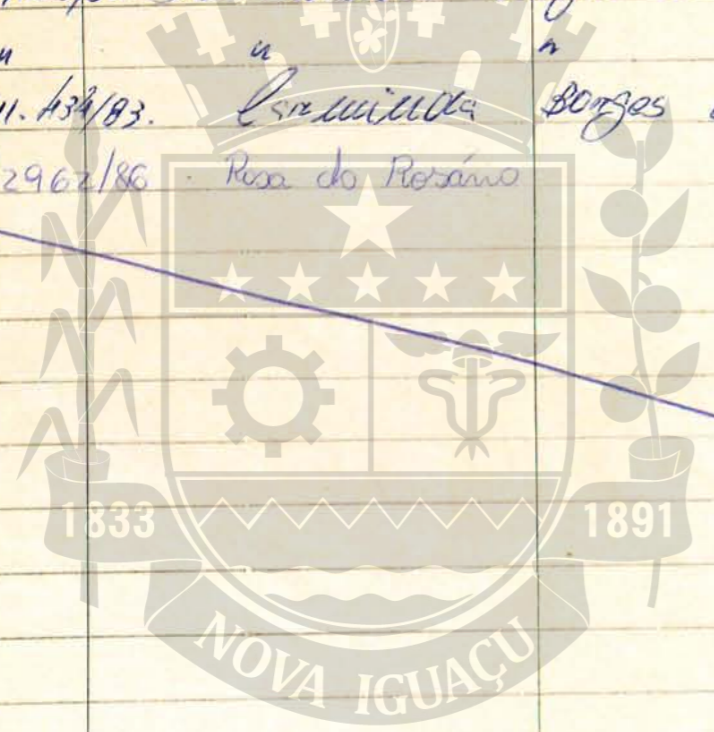 " " "
11.434/83. Carminda Borges
2962/86 Rosa do Rosário
1833 1891
NOVA IGUAÇU